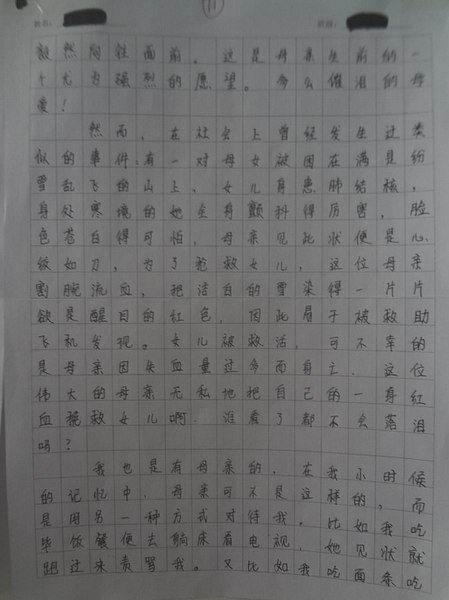 11
毅然向往面前。这是母亲生前的一
个尤为强烈的愿望。多么催泪的母
爱!
然而,在社会上曾经发生过类
似的事件:有一对母女被困在满是纷
雪乱飞的山上,女儿身患肺结核,
身处寒境的她全身颤抖得厉害,脸
色苍白得可怕,母亲见此状便是心
绞如刀,为了抢救女儿,这位母亲
割腕流血,把洁白的雪染得一片片
欲是醒目的红色,因此易于被救助
飞机发现。女儿被救活,可不幸的
是母亲因失血量过多而身亡。这位
伟大的母亲无私地把自己的一身红
血挽救女儿啊。谁看了都不会落泪
吗?
我也是有母亲的,在我小时候
的记忆中,母亲可不是这样的,而
是用另一种方式对待我。比如我吃
毕饭餐便去躺床看电视,她见状就
跑过来责骂我。又比如我吃面条吃